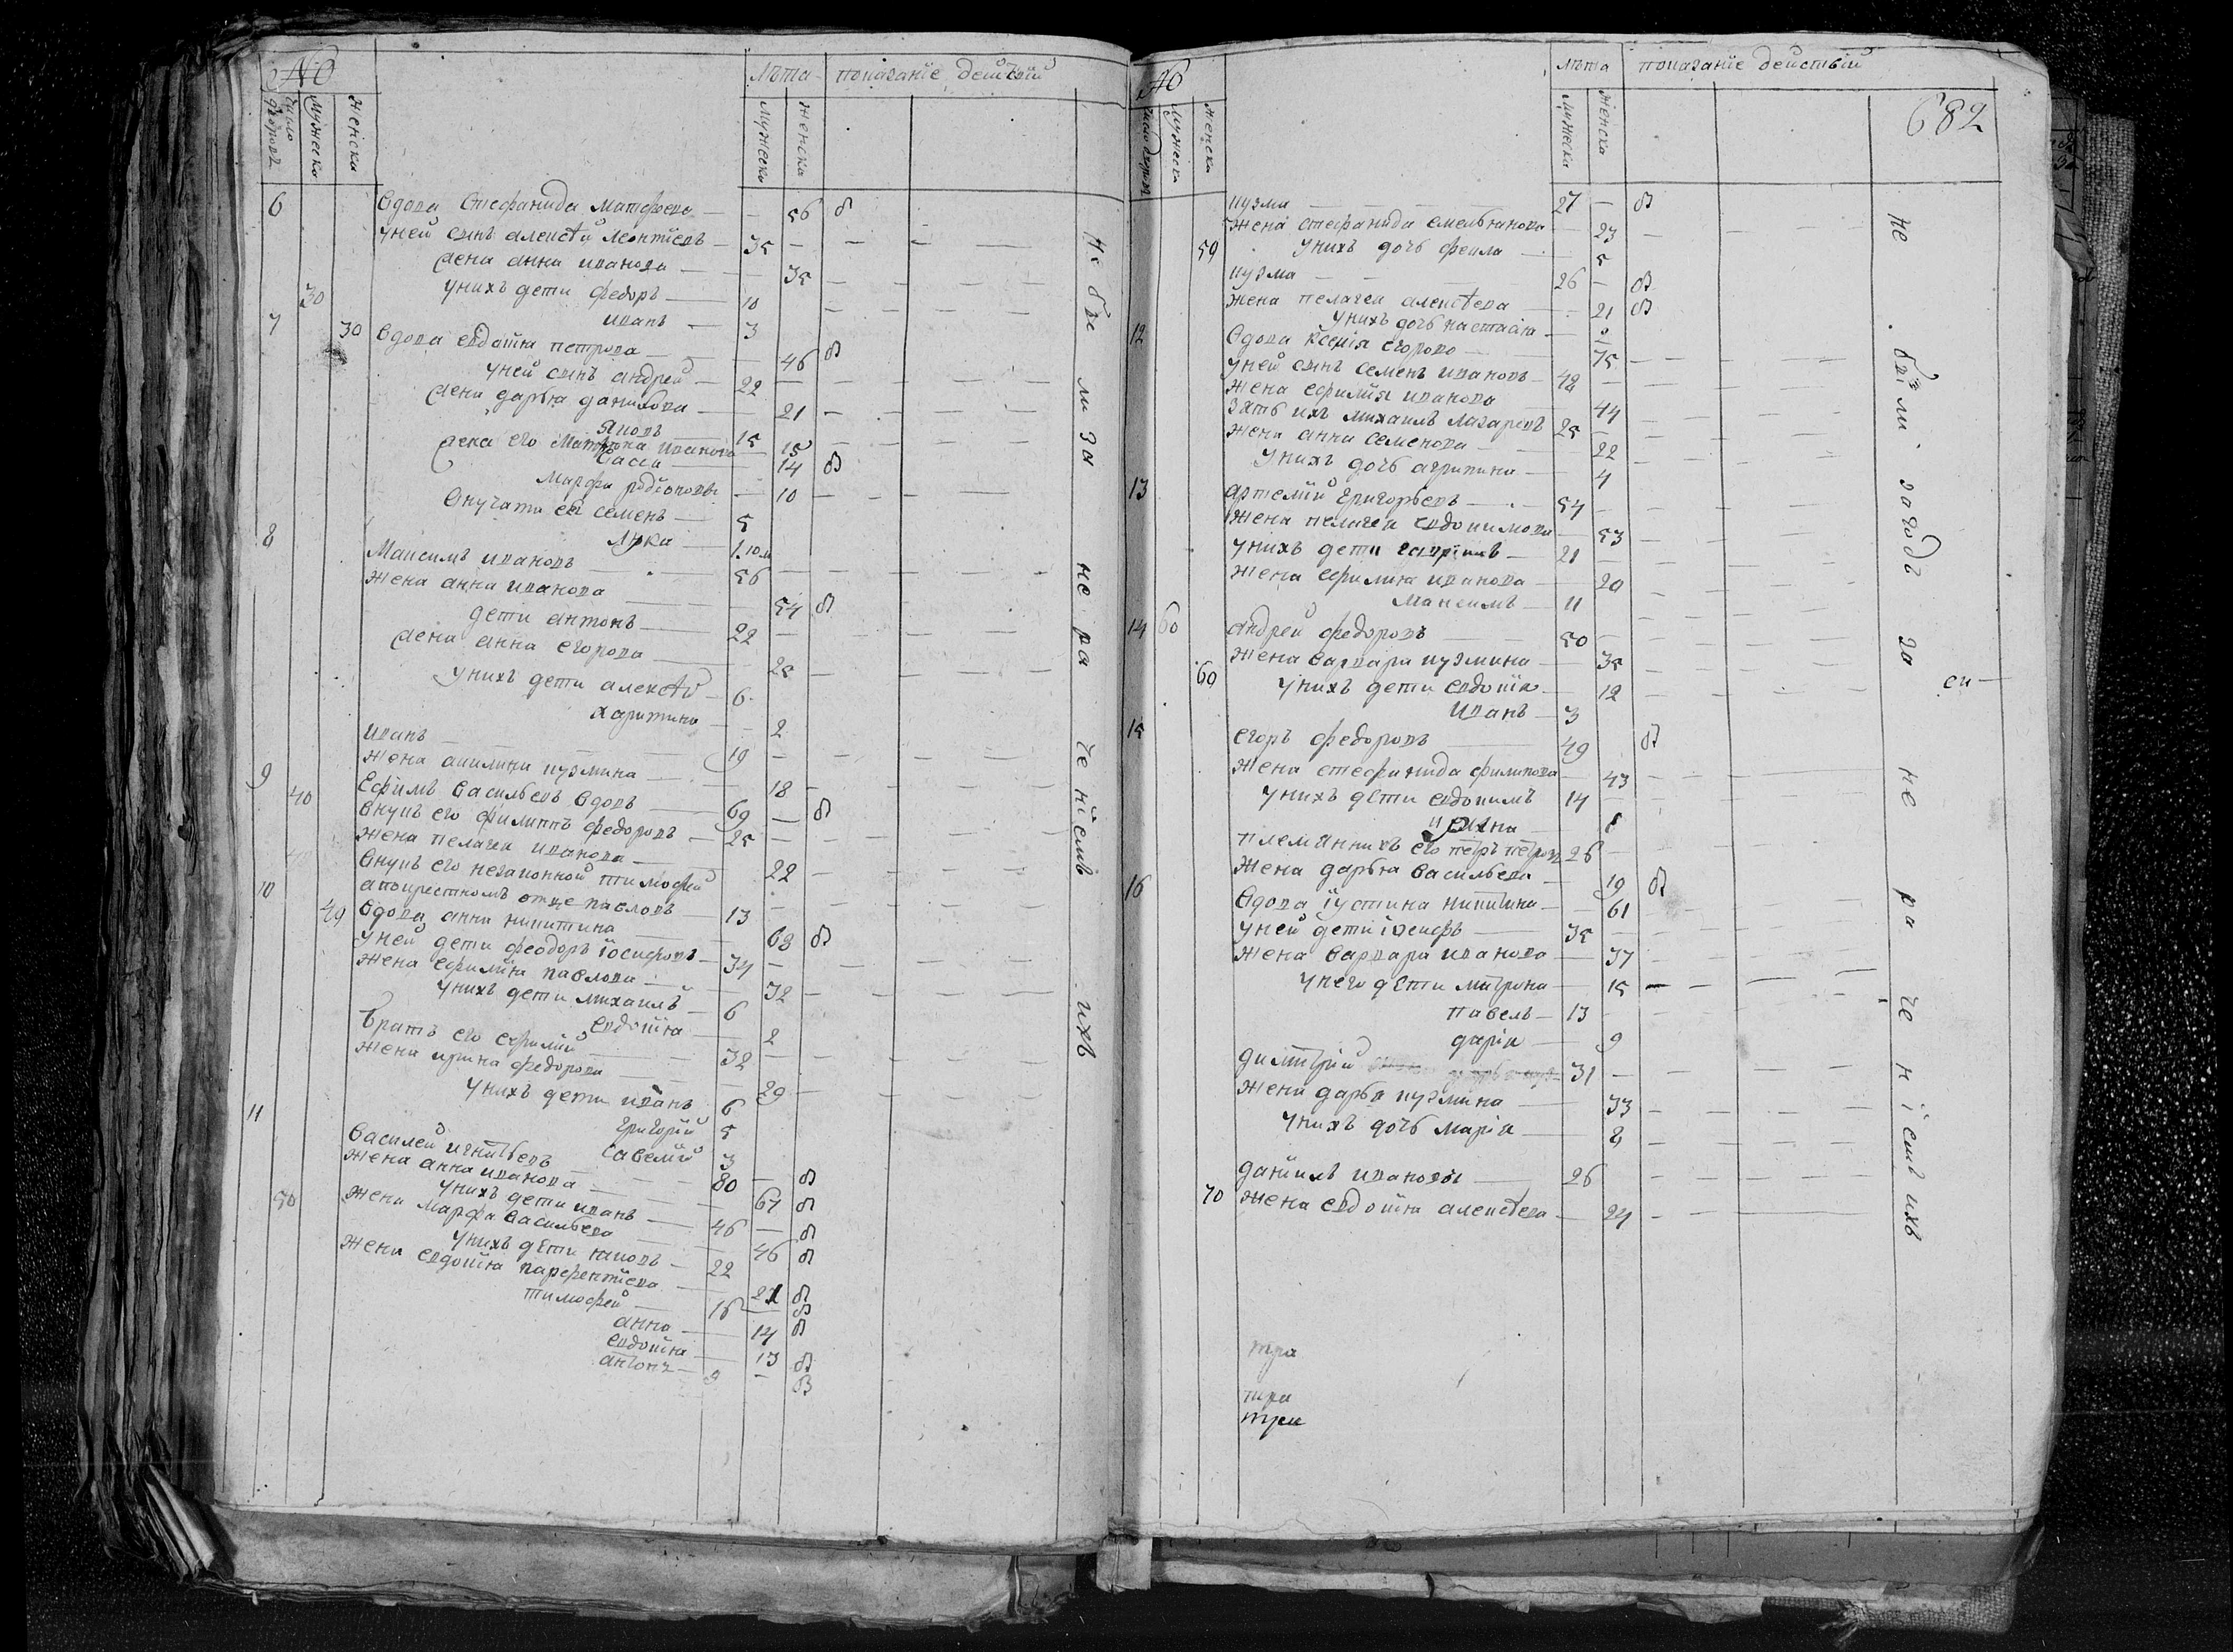 №
Лѣта показанїе действий
число дворовъ мужеска женска мужеска женска
6 вдова Стефанида Матфеева — — 56 В
у ней сынъ алексей леонтїевъ — 35 —
жена анна иванова — 35
30 у нихъ дети федоръ — 10
иванъ — 3
7 30 вдова евдокїя петрова — 46 В
у ней сынъ андрей — 22
жена дарья данилова — 21
яковъ 15
жена его Матрона иванова 15
14 В
Марфа родїоновы — 10
внучата ей семенъ — 5
Лука — 1.10 м
8 Максимъ ивановъ 56
жена анна иванова 54 В
дети антонъ 22
жена анна егорова 25
у нихъ дети алексей 6
харитина 2
иванъ 19
жена акилина кузмина 18
9 40 Ефимъ васильевъ вдовъ 69 — В
внукъ его филиппъ федоровъ 25
жена пелагея иванова 22
внукъ его незаконной тимофей
а по крестномъ отце павловъ 13
10 49 вдова анна никитина 68 В
у ней дети феодоръ їосифовъ 34
жена ефимїя павлова 32
у нихъ дети михаилъ 6
евдокїя 2
братъ его ефимїй 32
жена ирина федорова 29
у нихъ дети иванъ 6
григорїй 5
савелїй 3
11 василей игнатьевъ 80 — В
жена анна иванова 67 В
у нихъ дети иванъ 46 — В
50 жена марфа васильева 46 В
у нихъ дети яковъ 22 В
жена евдокїя парфентїева 21 В
тимофей 16 — В
анна 14 В
евдокїя 13 В
антонъ 9 — В
не бы ли за не ра че нїемъ ихъ
№
Лѣта показанїе действий
682
число дворовъ мужеска женска мужеска женска
кузма 27 — В
жена стефанида емельянова 23
59 у нихъ дочь фекла 5
кузма 26 — В
жена пелагея алексеева 21 В
у нихъ дочь настасїя
12 вдова ксенїя егорова 75
у ней сынъ семенъ ивановъ 42
жена ефимїя иванова 44
зять ихъ михаилъ лазаревъ 25
жена анна семенова 22
у нихъ дочь агрипина 4
13 артемїй григорьевъ 54
жена пелагея евдокимова 53
у нихъ дети гаврїилъ 21
жена ефимия иванова 20
Максимъ 11
14 60 андрей федоровъ 50
жена варвара кузмина 35
60 у нихъ дети евдокїя 12
иванъ 3
15 егоръ федоровъ 49 В
жена стефанида филипова 43
у нихъ дети евдокимъ 14
ирина 8
племянникъ его петръ петровъ 26
жена дарья васильева 19 В
16 вдова їустина никитина 61
у ней дети їосифъ 35
жена варвара иванова 37
у него дети матрона 15
павелъ 13
дарїя 9
димитрїй 31
жена дарья кузмина 33
у нихъ дочь марїя 8
данїилъ ивановы 26
70 жена евдокїя алексеева 24
не бы ли за годъ за не ра че нїемъ ихъ
тра
тра
тра